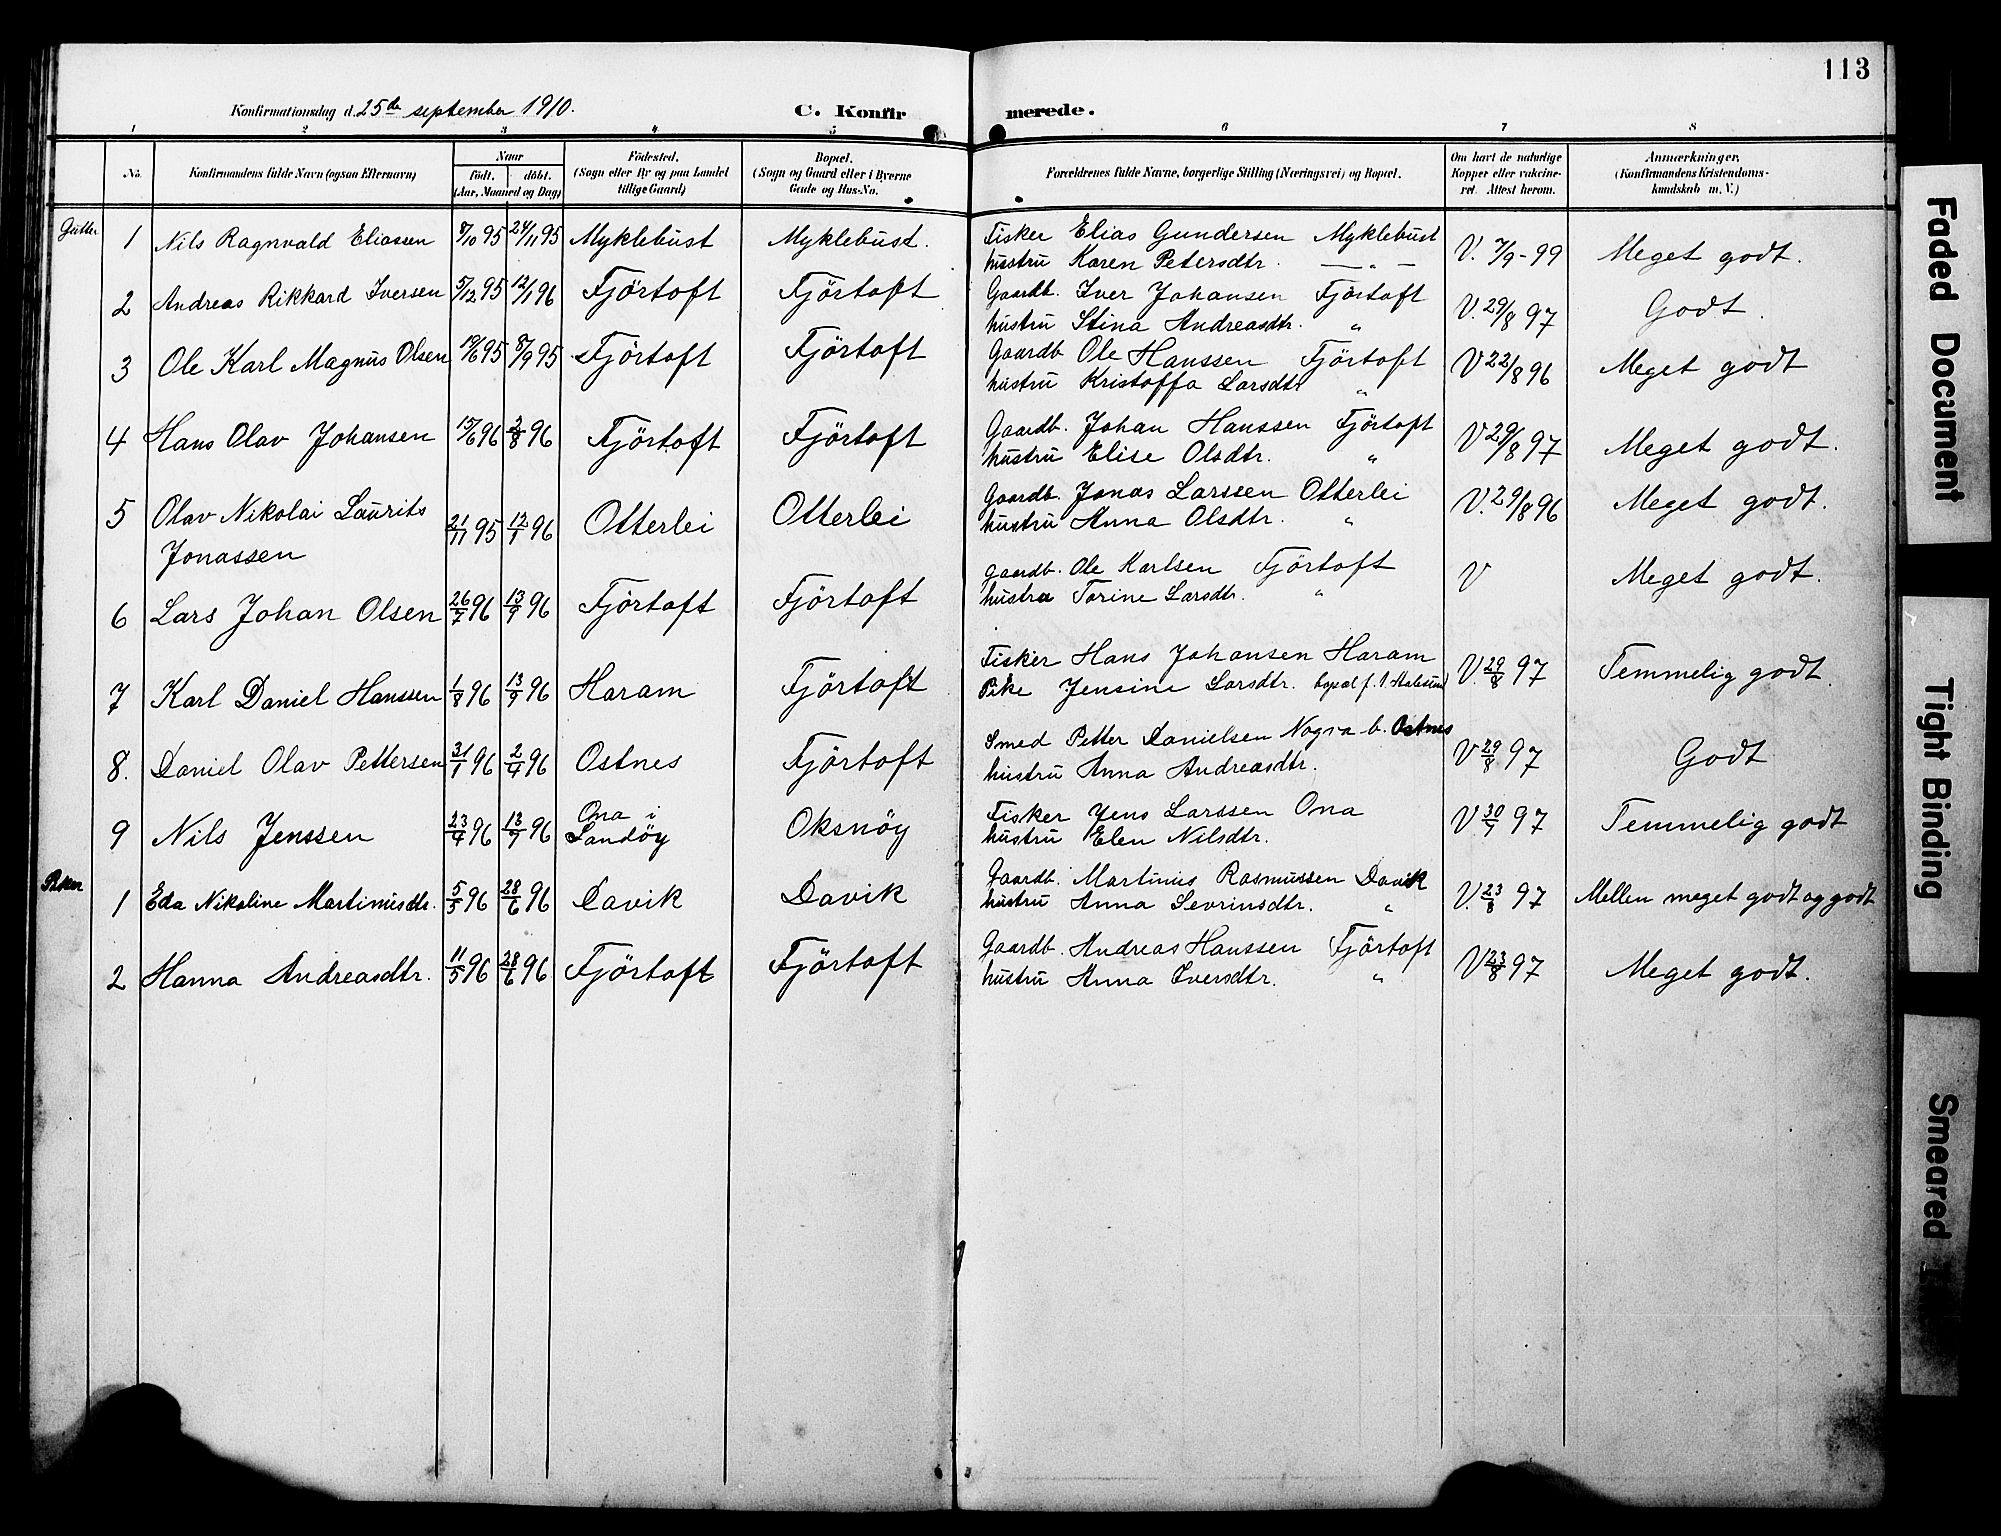 113
Konfirmationsdag d. 25de september 1910. C. Konfirmerede.
1 2 3 4 5 6 7 8
No. Konfirmandens fulde Navn (ogsaa Efternavn) Naar født. døbt. (Aar, Maaned og Dag) Fødested. (Sogn eller By og paa Landet tillige Gaard) Bopæl. (Sogn og Gaard eller i Byerne Gade og Hus-No. Forældrenes fulde Navne, borgerlige Stilling (Næringsvei) og Bopæl. Om havt de naturlige Kopper eller vakcineret. Attest herom. Anmærkninger. (Konfirmandens Kristendomskundskab m. V.)
Gutter
1 Nils Ragnvald Eliasen 8/10 95 24/11 95 Myklebust Myklebust. Fisker Elias Gundersen Myklebust V. 7/9-99 Meget godt.
hustru Karen Petersdtr. — " —
2 Andreas Rikkard Iversen 5/12 95 12/1 96 Fjörtoft Fjörtoft Gaardb. Iver Johansen Fjörtoft V. 29/8 97 Godt.
hustru Stina Andreasdtr. "
3 Ole Karl Magnus Olsen 19/6 95 8/9 95 Fjörtoft Fjörtoft Gaardb Ole Hanssen Fjörtoft V 22/8 96 Meget godt
hustru Kristoffa Larsdtr "
4 Hans Olav Johansen 15/6 96 2/8 96 Fjörtoft Fjörtoft Gaardb. Johan Hanssen Fjörtoft V 29/8 97 Meget godt.
hustru Elise Olsdtr. "
5 Olav Nikolai Laurits 21/11 95 12/1 96 Otterlei Otterlei Gaardb. Jonas Larssen Otterlei V. 29/8 96 Meget godt.
Jonassen hustru Anna Olsdtr. "
6 Lars Johan Olsen 26/7 96 13/9 96 Fjörtoft Fjörtoft gaardb. Ole Karlsen Fjörtoft V Meget godt.
hustru Torine Larsdtr. "
7 Karl Daniel Hanssen 1/8 96 13/9 96 Haram Fjörtoft Fisker Hans Johansen Haram V. 29/8 97 Temmelig godt.
Pike Jensine Larsdtr. bopæl f. t. Aalesund
8. Daniel Olav Pettersen 31/1 96 2/4 96 Ostnes Fjörtoft Smed Petter Danielsen Nogva b. Ostnes V 29/8 97 Godt
hustru Anna Andreasdtr.
9 Nils Jenssen 23/4 96 13/7 96 Ona i Sandöy Oksnöy Fisker Jens Larssen Ona V. 30/7 97 Temmelig godt
hustru Elen Nilsdtr.
Piker
1 Eda Nikoline Martinusdtr. 5/5 96 28/6 96 Davik Davik Gaardb. Martinus Rasmussen Davik V. 23/8 97 Mellen meget godt og godt
hustru Anna Sevrinsdtr. "
2 Hanna Andreasdtr. 11/5 96 28/6 96 Fjörtoft Fjörtoft Gaardb. Andreas Hanssen Fjörtoft V 23/8 97 Meget godt.
hustru Anna Iversdtr. "
Faded Document
Tight Binding
Smeared